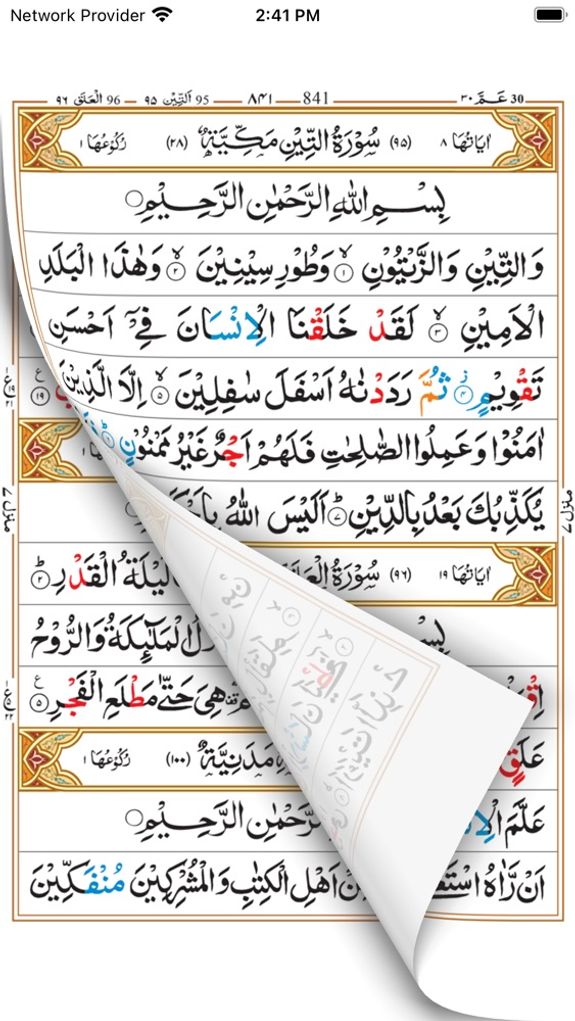 Network Provider 2:41 PM
30 عَـمَّ ٣٠ 841 ٨٤١ 95 اَلتِّيْن ٩٥ 96 الْعَلَق ٩٦
اٰيَاتُهَا ٨ (٩٥) سُوْرَةُ التِّيْنِ مَكِّيَّةٌ (٢٨) رُكُوْعُهَا ١
بِسْمِ اللهِ الرَّحْمٰنِ الرَّحِيْمِ
وَالتِّيْنِ وَالزَّيْتُوْنِ ۙ ١ وَطُوْرِ سِيْنِيْنَ ۙ ٢ وَهٰذَا الْبَلَدِ
الْاَمِيْنِ ۙ ٣ لَقَدْ خَلَقْنَا الْاِنْسَانَ فِيْٓ اَحْسَنِ
تَقْوِيْمٍ ۫ ٤ ثُمَّ رَدَدْنٰهُ اَسْفَلَ سٰفِلِيْنَ ۙ ٥ اِلَّا الَّذِيْنَ
١٩ ع
اٰمَنُوْا وَعَمِلُوا الصّٰلِحٰتِ فَلَهُمْ اَجْرٌ غَيْرُ مَمْنُوْنٍ
يُكَذِّبُكَ بَعْدُ بِالدِّيْنِ ؕ ٧ اَلَيْسَ اللهُ
منزل ٧
منزل ٧
اٰيَاتُهَا ١٩ (٩٦) سُوْرَةُ
لَيْلَةُ الْقَدْرِ ؕ ٢
بِسْ
الْمَلٰٓئِكَةُ وَالرُّوْحُ
هِيَ حَتّٰى مَطْلَعِ الْفَجْرِ ٥ ع
عَلَقٍ
مَدَنِيَّةٌ (١٠٠) رُكُوْعُهَا ١
عَلَّمَ
الرَّحْمٰنِ الرَّحِيْمِ
اَنْ رَّاٰهُ
اَهْلِ الْكِتٰبِ وَالْمُشْرِكِيْنَ مُنْفَكِّيْنَ